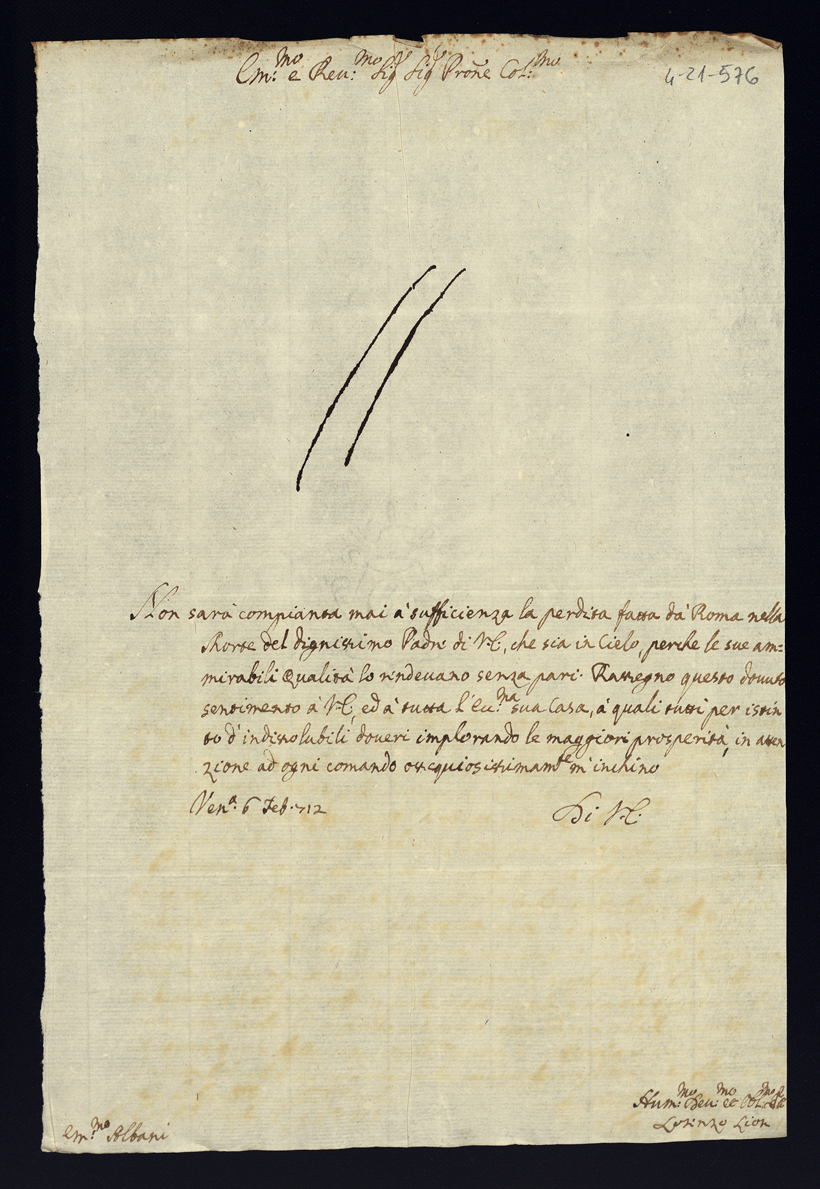 Em:mo e Reu:mo Sigr Sigr Proñe Col:mo
4-21-576
Non sarà compianta mai à sufficienza la perdita fatta dà Roma nella
Morte del dignissimo Padre di V.E., che sia in Cielo, perche le sue am=
mirabili Qualità lo rendevano senza pari. Rassegno questo douuto
sentimento à V.E., ed à tutta l'Ecc:ma sua Casa, à quali tutti per istin
to d'indissolubili doueri implorando le maggiori prosperità, in atten
zione ad ogni comando ossequiosissimamte m'inchino
Vena: 6 Feb. 712
Di V.E.
Hum:mo Deu:mo et Obl:mo
Lorenzo
Em:mo Albani